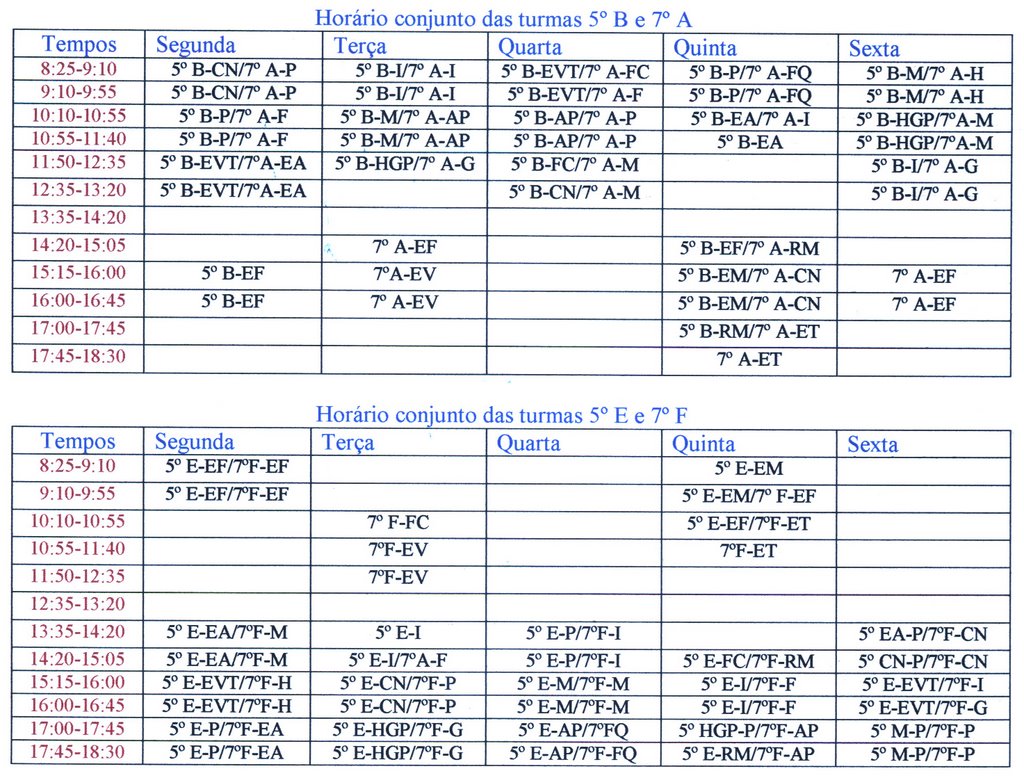 Horário conjunto das turmas 5º B e 7º A
Tempos Segunda Terça Quarta Quinta Sexta
8:25-9:10 5º B-CN/7º A-P 5º B-I/7º A-I 5º B-EVT/7º A-FC 5º B-P/7º A-FQ 5º B-M/7º A-H
9:10-9:55 5º B-CN/7º A-P 5º B-I/7º A-I 5º B-EVT/7º A-F 5º B-P/7º A-FQ 5º B-M/7º A-H
10:10-10:55 5º B-P/7º A-F 5º B-M/7º A-AP 5º B-AP/7º A-P 5º B-EA/7º A-I 5º B-HGP/7ºA-M
10:55-11:40 5º B-P/7º A-F 5º B-M/7º A-AP 5º B-AP/7º A-P 5º B-EA 5º B-HGP/7ºA-M
11:50-12:35 5º B-EVT/7ºA-EA 5º B-HGP/7º A-G 5º B-FC/7º A-M 5º B-I/7º A-G
12:35-13:20 5º B-EVT/7ºA-EA 5º B-CN/7º A-M 5º B-I/7º A-G
13:35-14:20
14:20-15:05 7º A-EF 5º B-EF/7º A-RM
15:15-16:00 5º B-EF 7ºA-EV 5º B-EM/7º A-CN 7º A-EF
16:00-16:45 5º B-EF 7º A-EV 5º B-EM/7º A-CN 7º A-EF
17:00-17:45 5º B-RM/7º A-ET
17:45-18:30 7º A-ET
Horário conjunto das turmas 5º E e 7º F
Tempos Segunda Terça Quarta Quinta Sexta
8:25-9:10 5º E-EF/7ºF-EF 5º E-EM
9:10-9:55 5º E-EF/7ºF-EF 5º E-EM/7º F-EF
10:10-10:55 7º F-FC 5º E-EF/7ºF-ET
10:55-11:40 7ºF-EV 7ºF-ET
11:50-12:35 7ºF-EV
12:35-13:20
13:35-14:20 5º E-EA/7ºF-M 5º E-I 5º E-P/7ºF-I 5º EA-P/7ºF-CN
14:20-15:05 5º E-EA/7ºF-M 5º E-I/7ºA-F 5º E-P/7ºF-I 5º E-FC/7ºF-RM 5º CN-P/7ºF-CN
15:15-16:00 5º E-EVT/7ºF-H 5º E-CN/7ºF-P 5º E-M/7ºF-M 5º E-I/7ºF-F 5º E-EVT/7ºF-I
16:00-16:45 5º E-EVT/7ºF-H 5º E-CN/7ºF-P 5º E-M/7ºF-M 5º E-I/7ºF-F 5º E-EVT/7ºF-G
17:00-17:45 5º E-P/7ºF-EA 5º E-HGP/7ºF-G 5º E-AP/7ºFQ 5º HGP-P/7ºF-AP 5º M-P/7ºF-P
17:45-18:30 5º E-P/7ºF-EA 5º E-HGP/7ºF-G 5º E-AP/7ºF-FQ 5º E-RM/7ºF-AP 5º M-P/7ºF-P